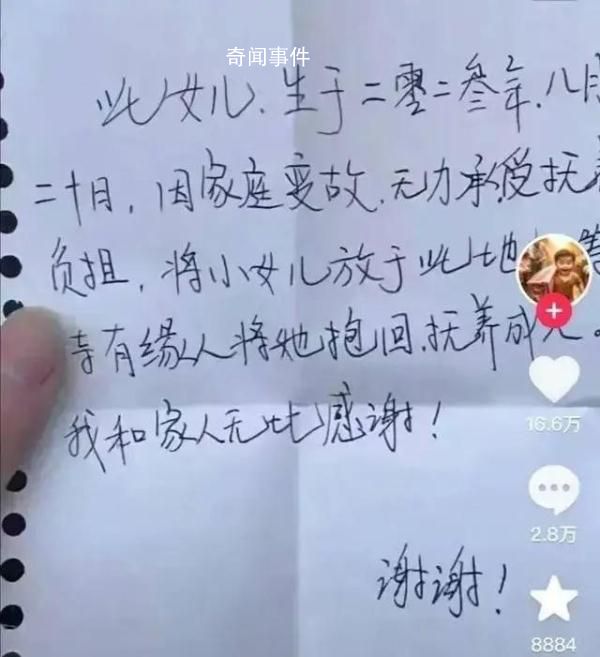 奇闻事件
此女儿、生于二零二叁年、八月
二十日，因家庭变故、无力承受抚养
负担，将小女儿放于此地、等
待有缘人将她抱回、抚养成人。
我和家人无比感谢！
谢谢！
16.6万
2.8万
8884